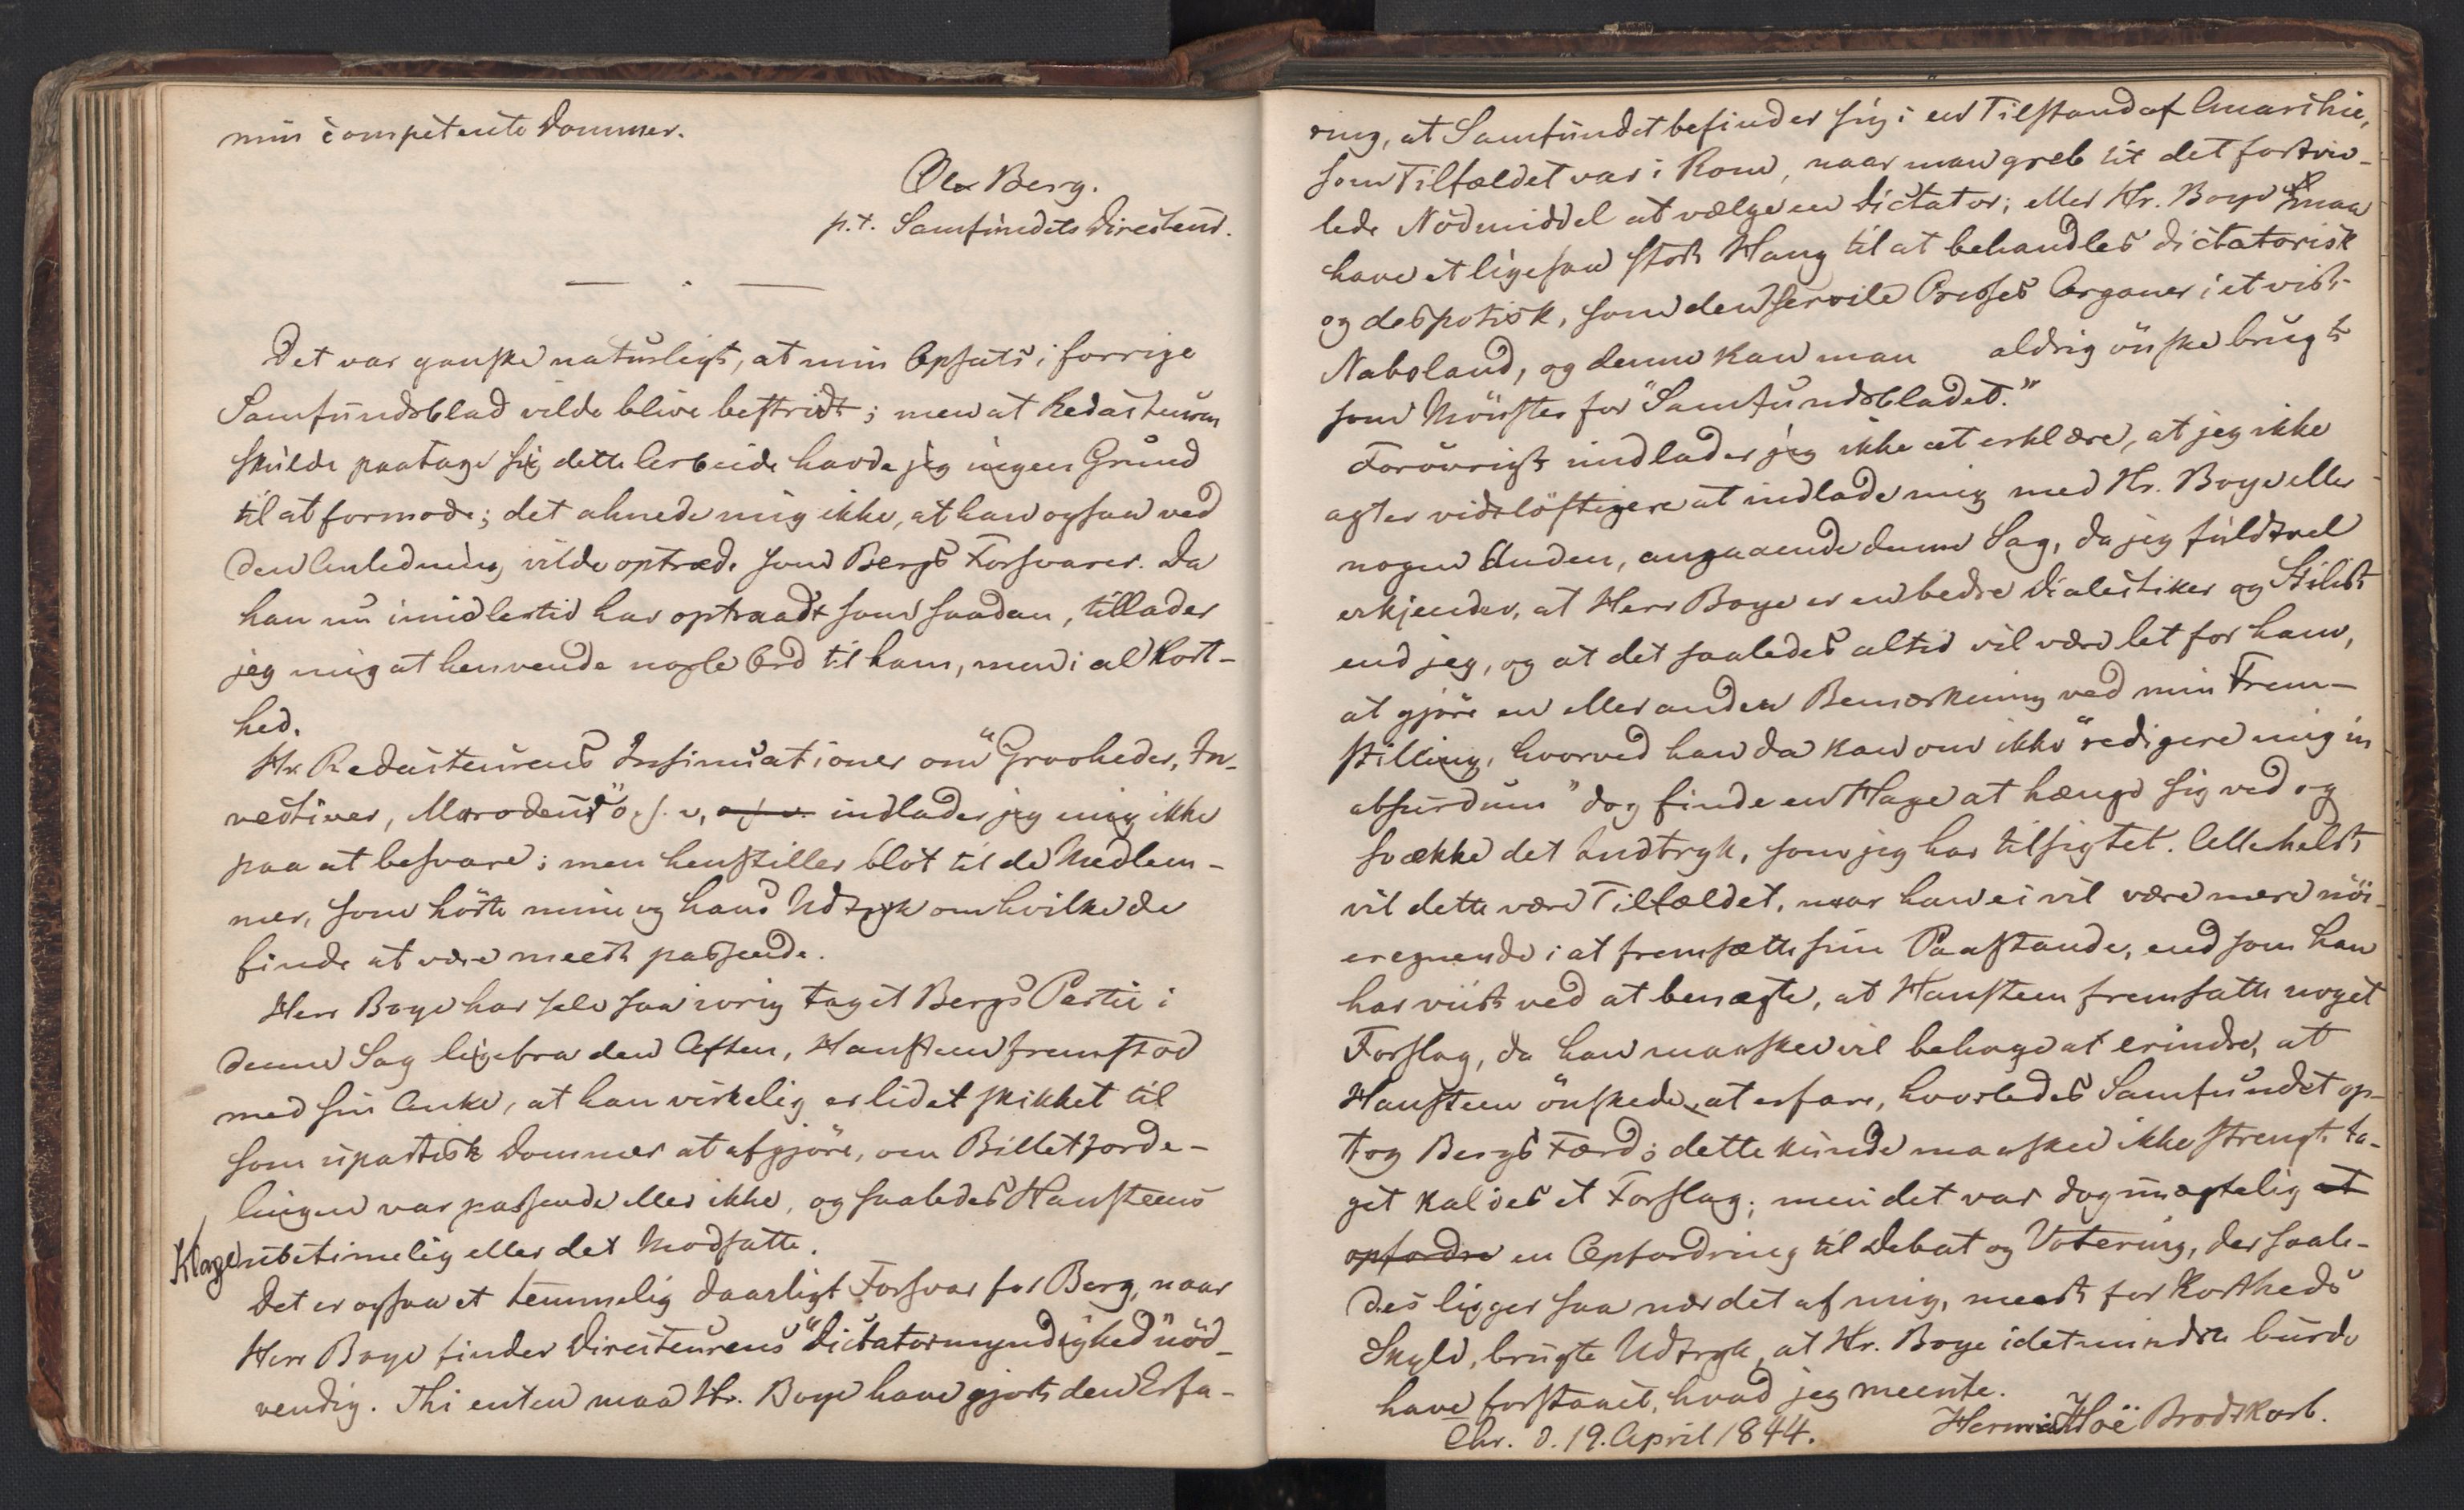 min competente Dommer.
Ole Berg.
p.t. Samfundets Directeur.
Det var ganske naturligt, at min Opsats i forrige
Samfundsblad vilde blive bestridt; men at Redacteuren
skulde paatage sig dette Arbeide havde jeg ingen Grund
til at formode; det ahnede mig ikke, at han ogsaa ved
den Anledning vilde optræde som Bergs Forsvarer. Da
han nu imidlertid har optraadt som saadan, tillader
jeg mig at henvende nogle Ord til ham, men i al Kort-
hed.
Hr Redacteurens Insinuationer om "Grovheder, In-
vectiver, Marodeur" o.s.v, o.s.v. indlader jeg mig ikke
paa at besvare; men henstiller blot til de Medlem-
mer, som hörte mine og hans Udtryk om hvilke de
finde at være meest passende.
Herr Boye har selv saa ivrig taget Bergs Partie i
denne Sag ligefra den Aften, Hansteen fremstod
med sin Anke, at han virkelig er lidet skikket til
som upartisk Dommer at afgjöre, om Billetforde-
lingen var passende eller ikke, og saaledes Hansteens
Klage ubetimelig eller det Modsatte.
Det er ogsaa et temmelig daarligt Forsvar for Berg, naar
Herr Boye finder Directeurens "Dictatormyndighed" nöd-
vendig. Thi enten maa Hr. Boye have gjort den Erfa-
ring, at Samfundet befinder sig i en Tilstand af Anarchie,
som Tilfældet var i Rom, naar man greb til det fortviv-
lede Nödmiddel at vælge en Dictator; eller Hr. Boye maa
have et ligesaa stort Hang til at behandles dictatorisk
og despotisk, som den servile Presses Organer i et vist
Naboland, og denne kan man aldrig önske brugt
som Mönster for "Samfundsbladet."
Forövrigt indlader jeg ikke at erklære, at jeg ikke
agter vidtlöftigere at indlade mig med Hr. Boye eller
nogen Anden, angaaende denne Sag, da jeg fuldtvel
erkjender, at Herr Boye er en bedre Dialectiker og Stilist
end jeg, og at det saaledes altid vil være let for ham,
at gjöre en eller anden Bemærkning ved min Frem-
stilling, hvorved han da kan om ikke "redigere mig in
absurdum" dog finde en Hage at hænge sig ved og
svække det Indtryk, som jeg har tilsigtet. Allerhelst
vil dette være Tilfældet, naar han ei vil være mere nöi-
eregnende i at fremsætte sine Paastande, end som han
har viist ved at benægte, at Hansteen fremsatte noget
Forslag, da han maaskee vil behage at erindre, at
Hansteen önskede at erfare, hvorledes Samfundet op-
tog Bergs Færd; dette kunde maaskee ikke strengt ta-
get kaldes et Forslag; men det var dog unægtelig at
opfordre en Opfordring til Debat og Votering, der saale-
des ligger saa nær det af mig, meest for Kortheds
Skyld, brugte Udtryk, at Hr. Boye idetmindste burde
have forstaaet, hvad jeg meente.
Chr. d. 19. April 1844.
Brodtkorb.